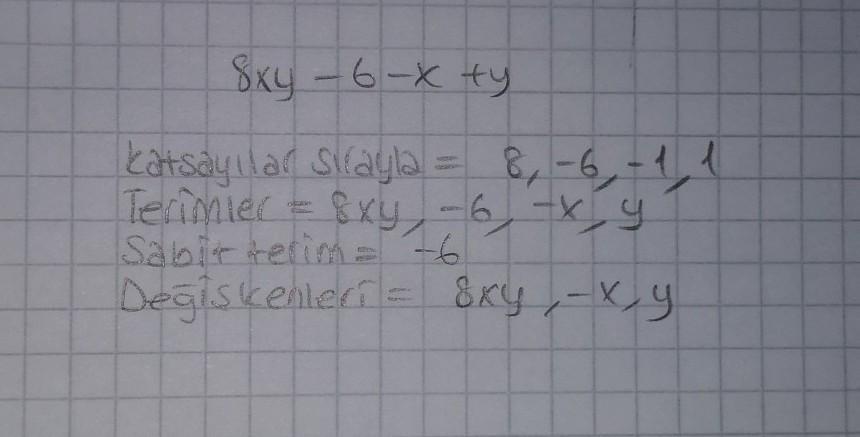 8xy - 6 - x + y
Katsayılar sırayla = 8, -6, -1, 1
Terimler = 8xy, -6, -x, y
Sabit terim = -6
Değişkenleri = 8xy, -x, y